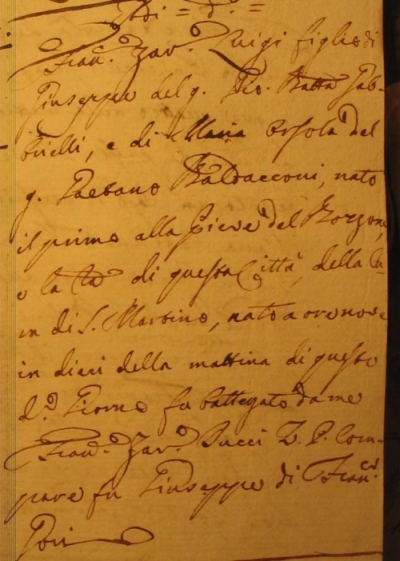 Adi = d.° =
Fran.° Zav.° Luigi figlio di
Giuseppe del q. Gio. Batta Gab-
brielli, e di Maria Orsola del
q. Gaetano Baldacconi, nato
il primo alla Pieve del Bozzone,
e la 2da di questa Città, della Cu-
ra di S. Martino, nato a ore nove
in dieci della mattina di questo
d.° Giorno fu battezzato da me
Fran.° Zav.° Pucci Com-
pare fu Giuseppe di Fran.co